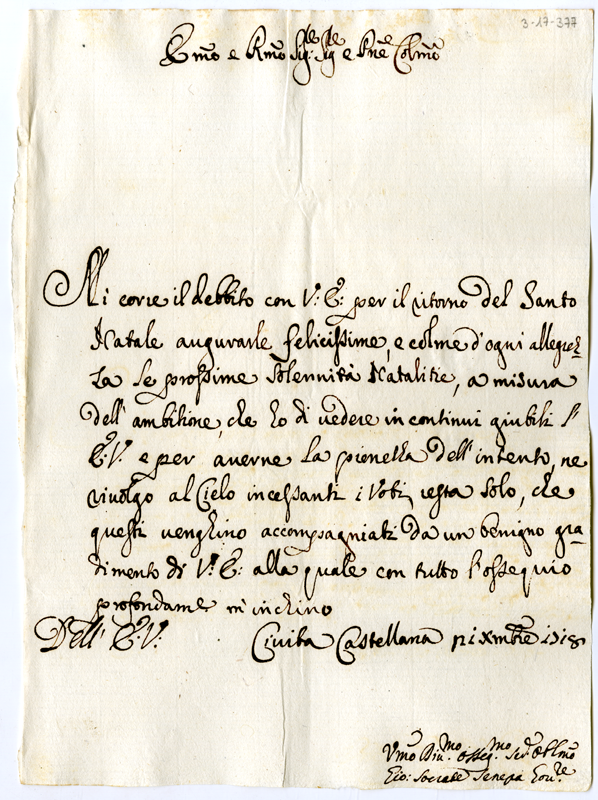 3-17-377
Emo e Rmo Sig.re Sig.re e Pne Colmo
Mi corre il debbito con V: E: per il ritorno del Santo
Natale augurarle felicissime, e colme d'ogni allegrez
za le prossime Solennità Natalitie, a misura
dell'ambitione, che ho di vedere in continui giubili l'
E: V: e per averne la pienezza dell'intento, ne
rivolgo al Cielo incessanti i Voti, resta solo, che
questi venghino accompagniati da un benigno gra
dimento di V: E: alla quale con tutto l'ossequio
profondame m'inchino
Dell' E: V: Civita Castellana pi Xmbre 1718
Vmo Diu.mo Osseq.mo Ser. Oblmo
Gio: Socrate Senepa Gou.re